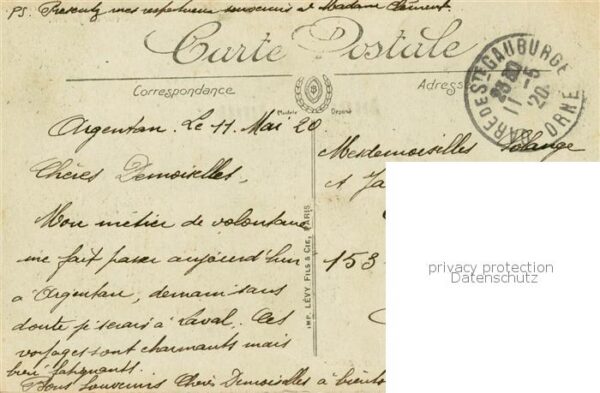 PS. Presentez mes respectueux souvenirs à Madame Clément.
Carte Postale
Correspondance
Adresse
Modèle Déposé
GARE DE STE GAUBURGE
23 20
11 - 5
20
ORNE
Argentan. Le 11 Mai 20
Chères Demoiselles,
Mon métier de volontaire
me fait passer aujourd'hui
à Argentan, demain sans
doute je serais à Laval. Ces
voyages sont charmants mais
bien fatiguants.
Bons Souvenirs Chères Demoiselles à bientôt
IMP. LÉVY FILS & CIE, PARIS
Mesdemoiselles Solange
et Ja
153
privacy protection
Datenschutz